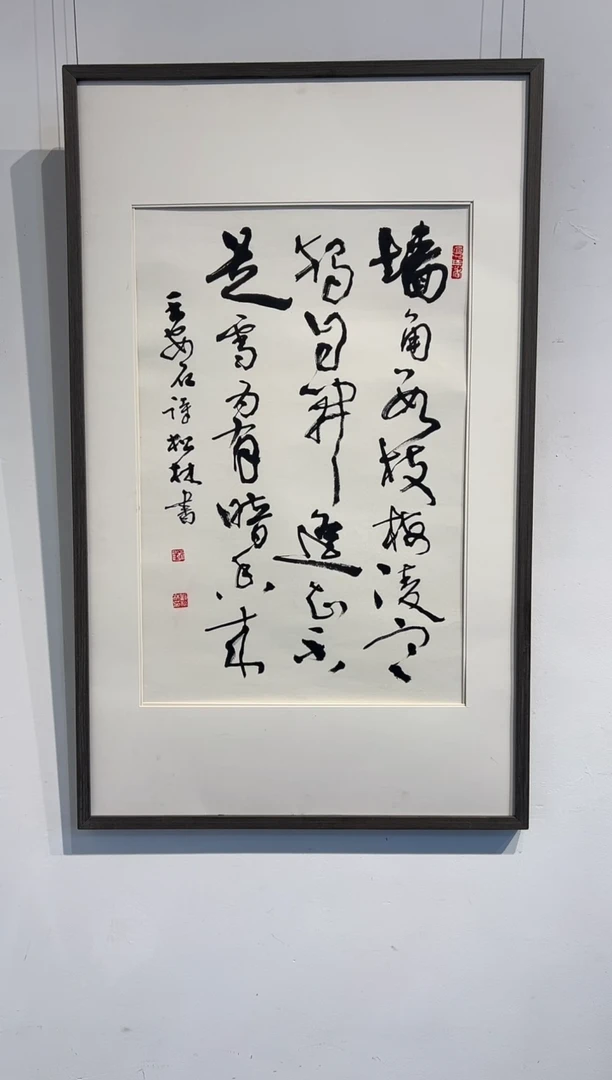 墙角数枝梅凌寒
独自开遥知不
是雪为有暗香来
王安石诗松林书